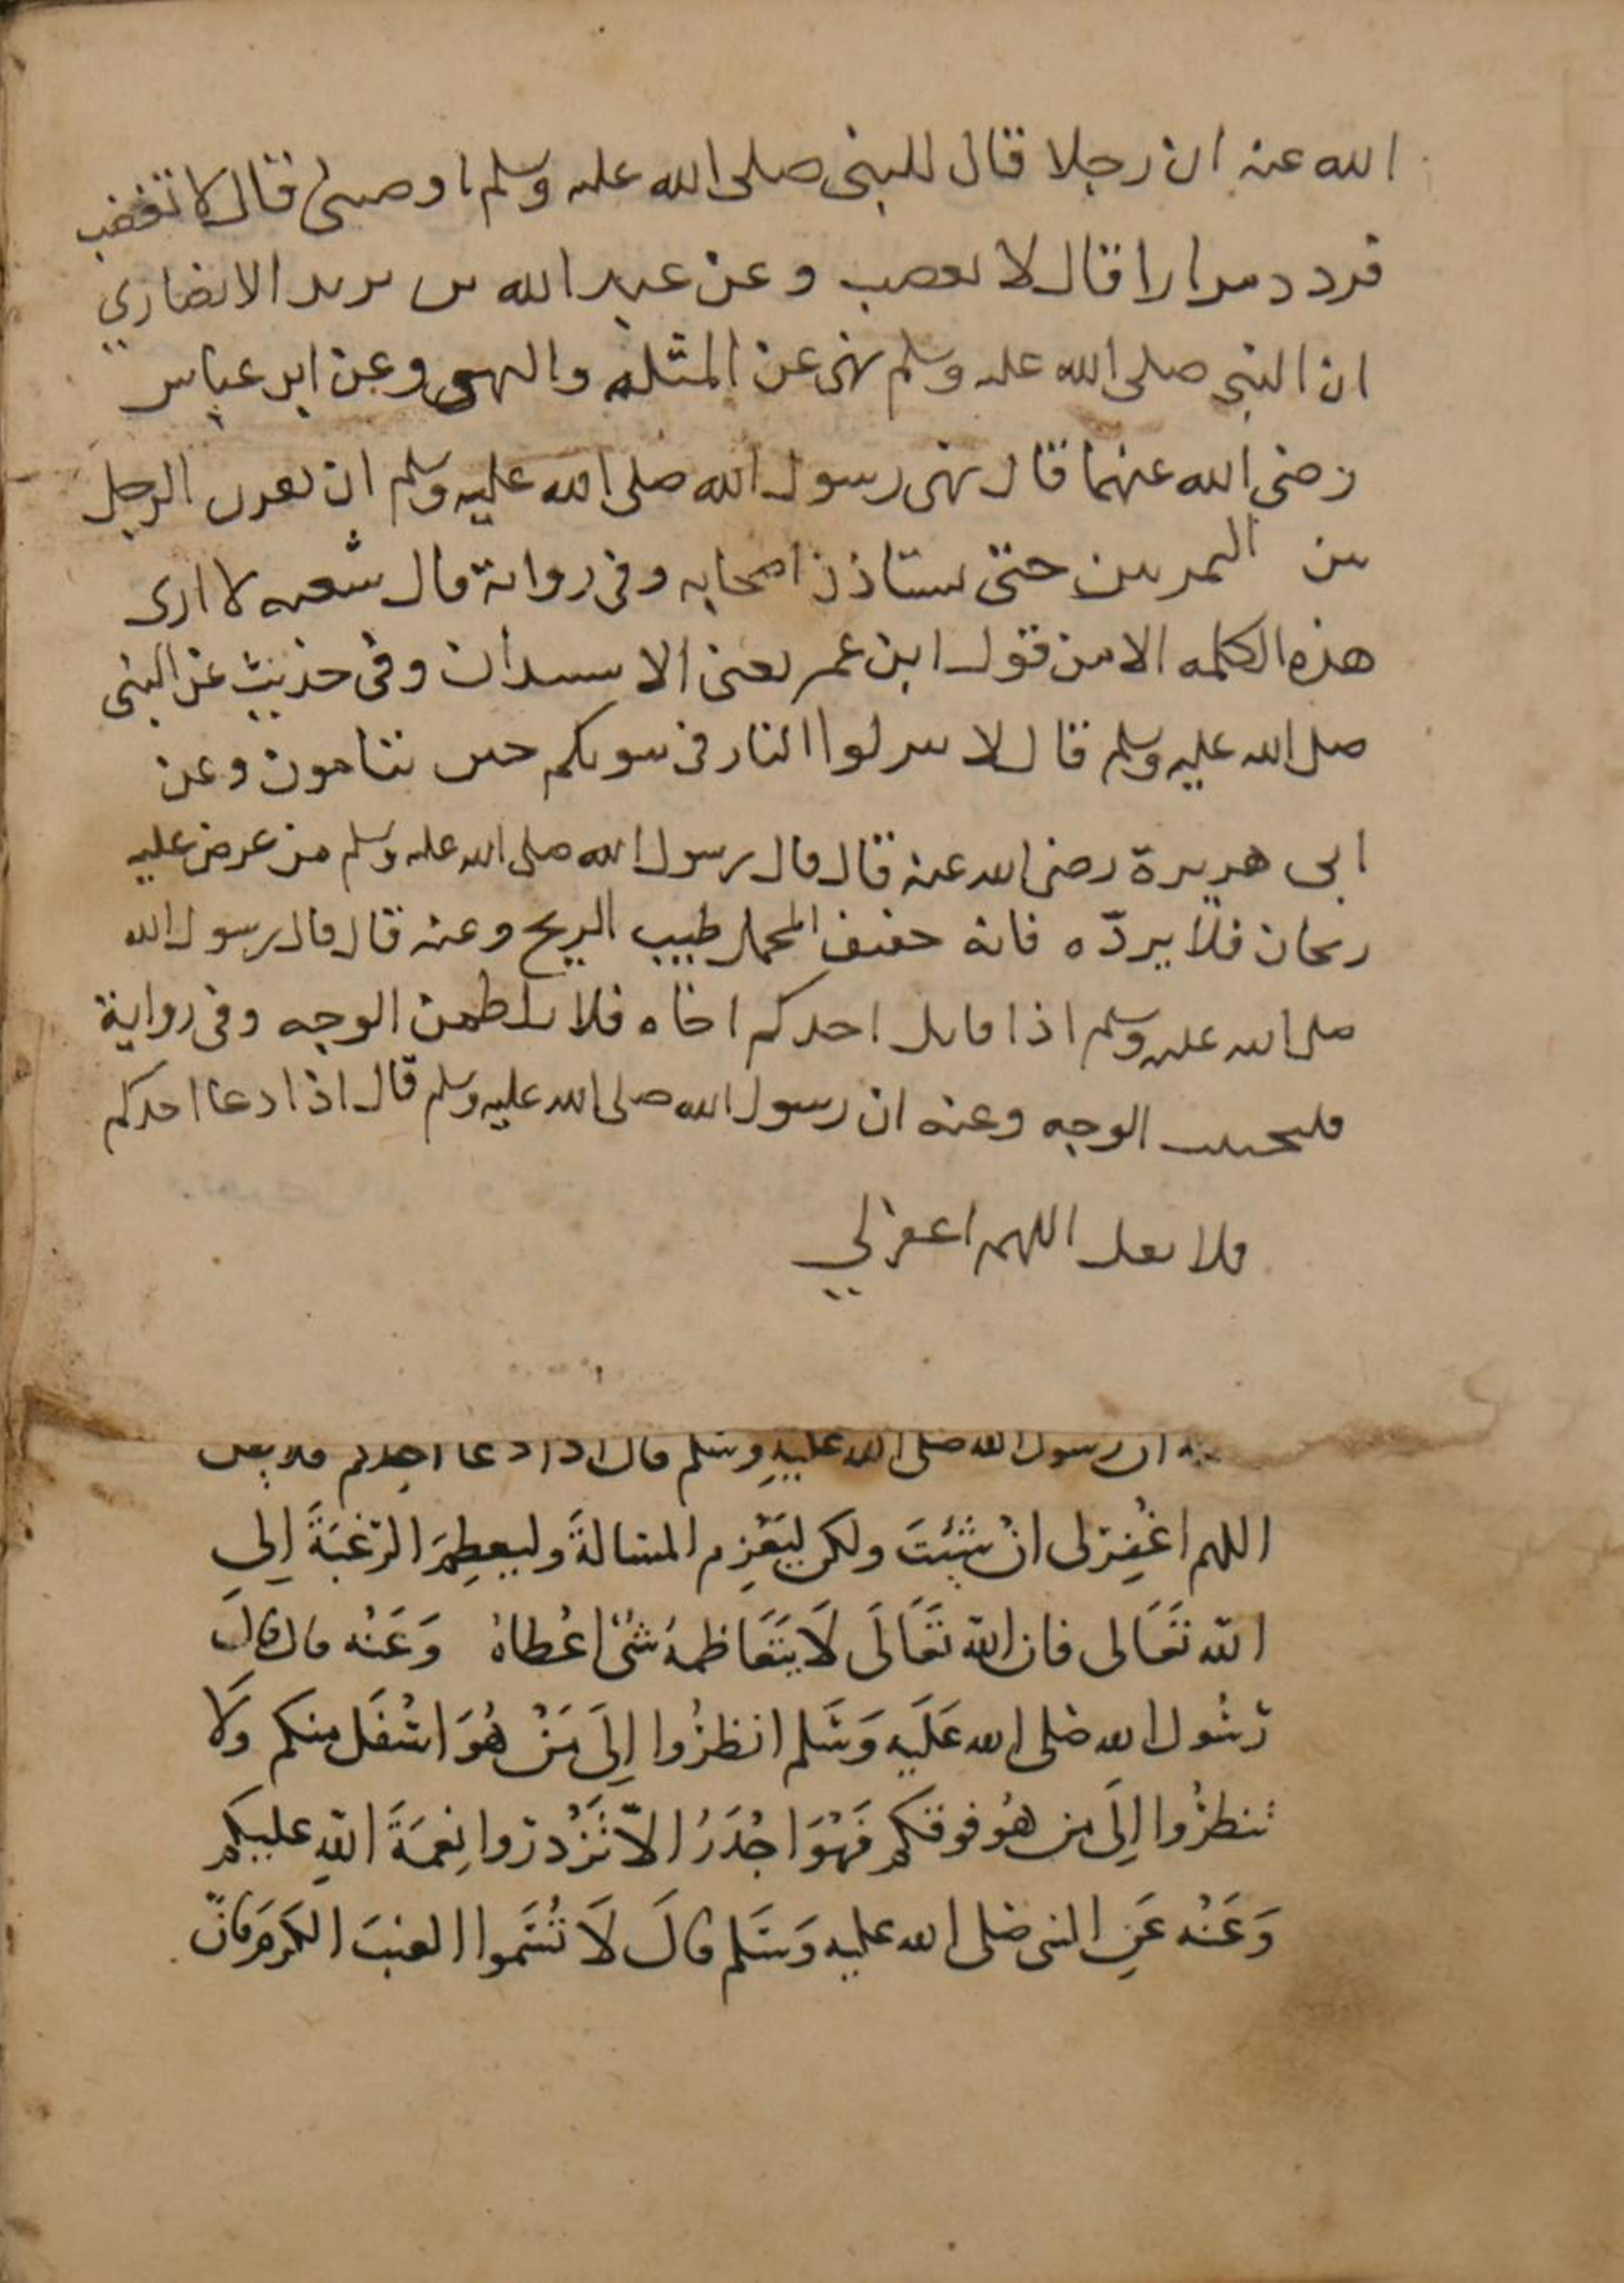 الله عنه ان رجلا قال للنبى صلى الله عليه وسلم اوصنى قال لا تغضب
فردد مرارا قال لا تغضب وعن عبد الله بن يزيد الانصاري
ان النبى صلى الله عليه وسلم نهى عن المثلة والنهبى وعن ابن عباس
رضى الله عنهما قال نهى رسول الله صلى الله عليه وسلم ان يقرن الرجل
بين التمرتين حتى يستاذن اصحابه وفى رواية قال شعبه لا ارى
هذه الكلمه الا من قول ابن عمر يعنى الاستيذان وفى حديث عن النبى
صلى الله عليه وسلم قال لا تتركوا النار فى بيوتكم حين تنامون وعن
ابى هريرة رضى الله عنه قال قال رسول الله صلى الله عليه وسلم من عرض عليه
ريحان فلا يردّه فانه خفيف المحمل طيب الريح وعنه قال قال رسول الله
صلى الله عليه وسلم اذا قاتل احدكم اخاه فلا يلطمن الوجه وفى رواية
فليجتنب الوجه وعنه ان رسول الله صلى الله عليه وسلم قال اذا دعا احدكم
فلا يقل اللهم اغفر لي
ان رسول الله صلى الله عليهِ وسلم قال اذا دعا احدكم فلا يقل
اللهم اغْفِر لى انْ شِئتَ ولكن ليَعْزِم المسالةَ وليعظِم الرّغبَةَ اِلى
الله تَعَالى فان الله تعَالَى لَا يتَعَاظمهُ شىْ اعْطاهُ وَعَنْه قال قالَ
رَسُول الله صلى الله عَلَيه وَسَلم انظرُوا اِلَى مَنْ هُوَ اسْفَل منكم وَلا
تنظرُوا اِلَى من هُو فوقكم فَهْوَ اجْدَرُ الاّ تَزْدروا نِعْمَةَ اللهِ عليكم
وَعَنْه عَنِ النبى صلى الله عليه وَسَلم قالَ لَا تُسَمّوا العنبَ الكَرمَ فانّ